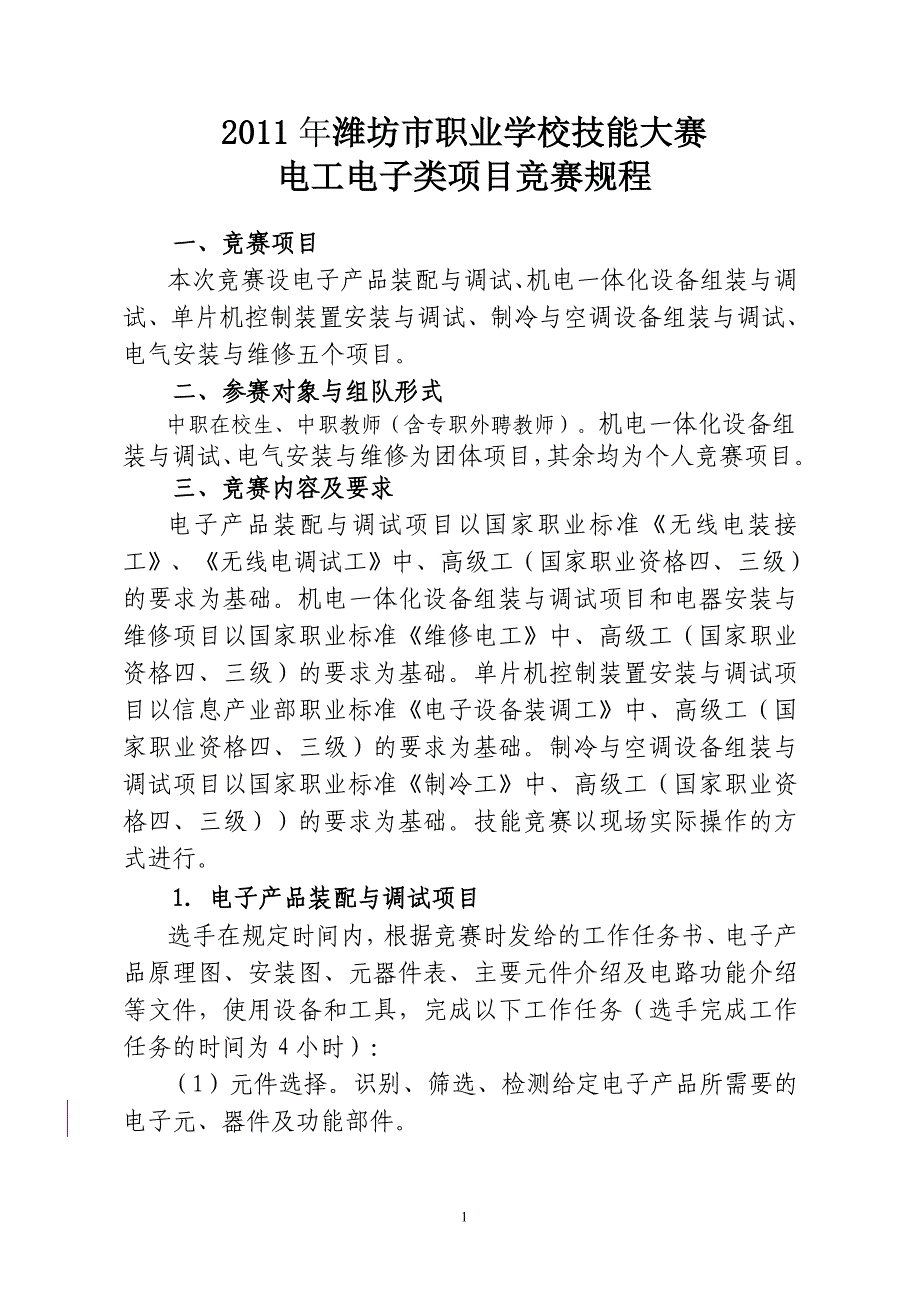 2011年潍坊市职业学校技能大赛
电工电子类项目竞赛规程
一、竞赛项目
本次竞赛设电子产品装配与调试、机电一体化设备组装与调
试、单片机控制装置安装与调试、制冷与空调设备组装与调试、
电气安装与维修五个项目。
二、参赛对象与组队形式
中职在校生、中职教师（含专职外聘教师）。机电一体化设备组
装与调试、电气安装与维修为团体项目,其余均为个人竞赛项目。
三、竞赛内容及要求
电子产品装配与调试项目以国家职业标准《无线电装接
工》、《无线电调试工》中、高级工（国家职业资格四、三级）
的要求为基础。机电一体化设备组装与调试项目和电器安装与
维修项目以国家职业标准《维修电工》中、高级工（国家职业
资格四、三级）的要求为基础。单片机控制装置安装与调试项
目以信息产业部职业标准《电子设备装调工》中、高级工（国
家职业资格四、三级）的要求为基础。制冷与空调设备组装与
调试项目以国家职业标准《制冷工》中、高级工（国家职业资
格四、三级））的要求为基础。技能竞赛以现场实际操作的方
式进行。
1. 电子产品装配与调试项目
选手在规定时间内,根据竞赛时发给的工作任务书、电子产
品原理图、安装图、元器件表、主要元件介绍及电路功能介绍
等文件，使用设备和工具，完成以下工作任务（选手完成工作
任务的时间为4小时）：
（1）元件选择。识别、筛选、检测给定电子产品所需要的
电子元、器件及功能部件。
1